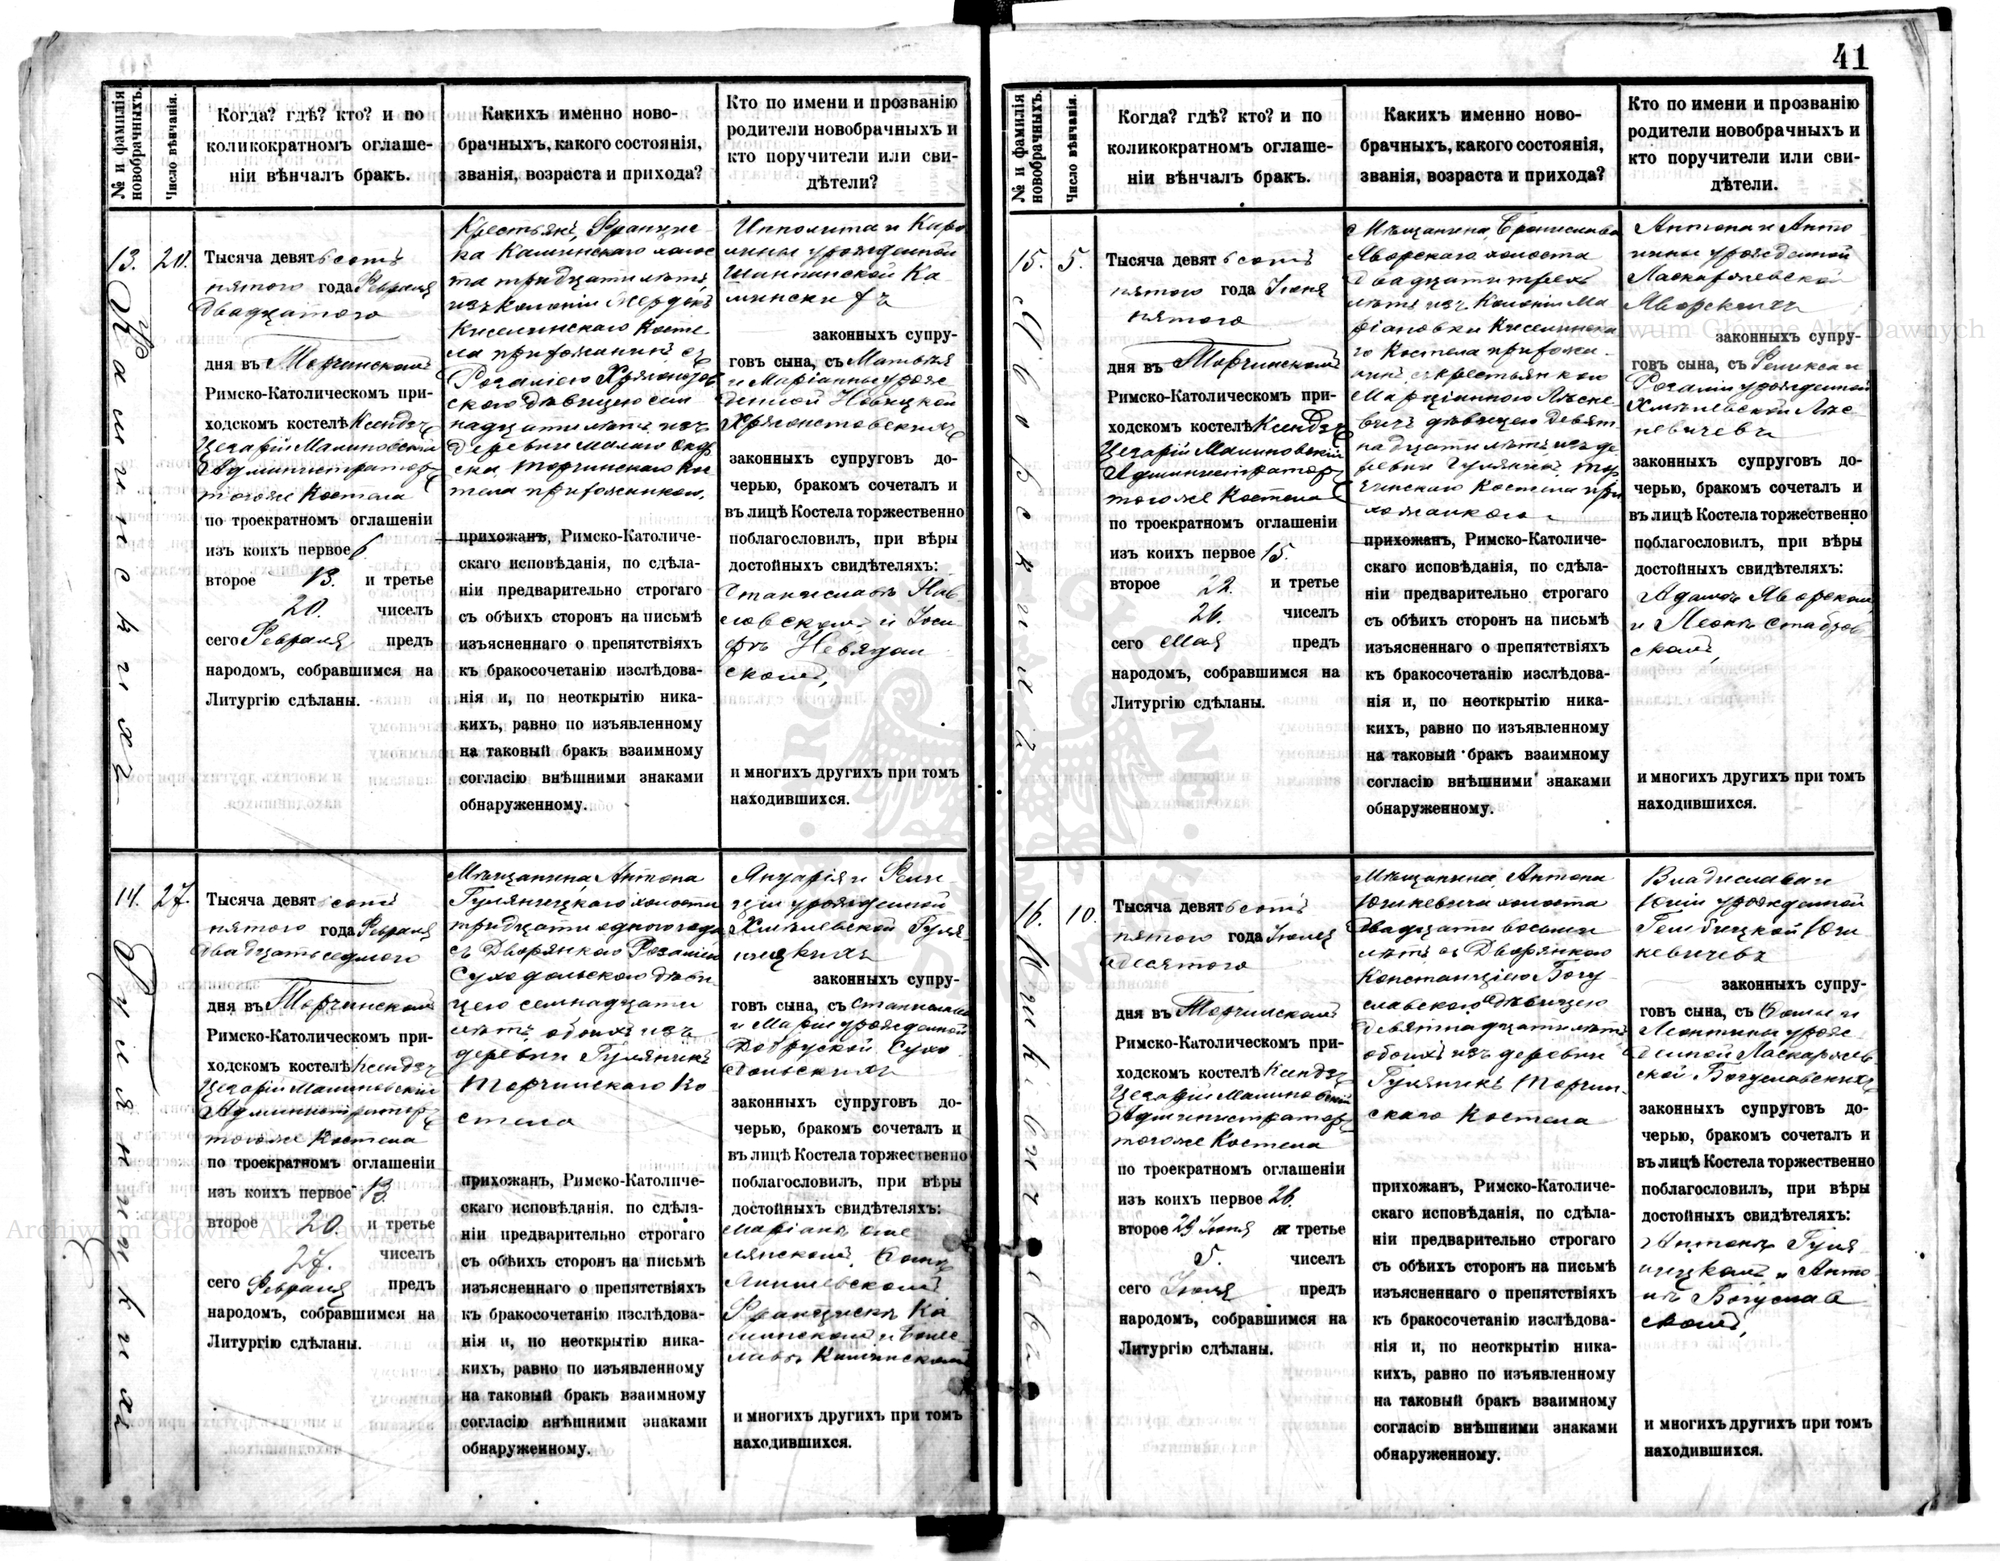 41
№ и фамилія новобрачныхъ.
Число вѣнчанія.
Когда? гдѣ? кто? и по
коликократномъ оглаше-
ніи вѣнчалъ бракъ.
Какихъ именно ново-
брачныхъ, какого состоянія,
званія, возраста и прихода?
Кто по имени и прозванію
родители новобрачныхъ и
кто поручители или сви-
дѣтели?
13.
Каминскихъ
20.
Тысяча девятьсотъ
пятого года Февраля
Двадцатого
дня въ Торчинскомъ
Римско-Католическомъ при-
ходскомъ костелѣ Ксендзъ
Цезарій Малиновскій
Администраторъ
тогоже Костела
по троекратномъ оглашеніи
изъ коихъ первое 6.
второе 13. и третье
20. числъ
сего Февраля предъ
народомъ, собравшимся на
Литургію сдѣланы.
Крестьян. Францис-
ка Каминскаго холос-
та тридцати лѣтъ,
изъ Колоніи
Киселинскаго Косте-
ла прихожанин. съ
Розаліею
девицею сем
надцати лѣтъ изъ
деревни Малаго
Торчинскаго Ко
стела прихожанкою,
прихожанъ, Римско-Католиче-
скаго исповѣданія, по сдѣла-
ніи предварительно строгаго
съ обѣихъ сторонъ на письмѣ
изъясненнаго о препятствіяхъ
къ бракосочетанію изслѣдова-
нія и, по неоткрытію ника-
кихъ, равно по изъявленному
на таковый бракъ взаимному
согласію внѣшними знаками
обнаруженному.
Ипполита и Каро
лины урожденной
Ка
мински хъ
законныхъ супру-
говъ сына, съ Матвѣя
и Маріанны урож
денной Новицкой
законныхъ супруговъ до-
черью, бракомъ сочеталъ и
въ лицѣ Костела торжественно
поблагословилъ, при вѣры
достойныхъ свидѣтеляхъ:
Станиславъ Пав-
ловскомъ и Іоси
фъ
скомъ,
и многихъ другихъ при томъ
находившихся.
14.
Гуляницкихъ
27.
Тысяча девятьсотъ
пятого года Февраля
двадцатьседмого
дня въ Торчинскомъ
Римско-Католическомъ при-
ходскомъ костелѣ Ксендзъ
Цезарій Малиновскій
Администраторъ
тогоже Костела
по троекратномъ оглашеніи
изъ коихъ первое 13.
второе 20. и третье
27. числъ
сего Февраля предъ
народомъ, собравшимся на
Литургію сдѣланы.
Мѣщанина Антона
Гуляницкаго холоста
тридцати одного года
съ Дворянкою Розаліею
Суходольскою дѣви
цею семнадцати
лѣтъ обоихъ изъ
деревни Гуляникъ
Торчинскаго Ко
стела
прихожанъ, Римско-Католиче-
скаго исповѣданія. по сдѣла-
ніи предварительно строгаго
съ обѣихъ сторонъ на письмѣ
изъясненнаго о препятствіяхъ
къ бракосочетанію изслѣдова-
нія и, по неоткрытію ника-
кихъ, равно по изъявленному
на таковый бракъ взаимному
согласію внѣшними знаками
обнаруженному.
Януарія и Фели
ціи урожденной
Хмѣлевской Гуля
ницкихъ
законныхъ супру-
говъ сына, съ Станислава
и Маріи урожденной
Сухо
дольскихъ
законныхъ супруговъ до-
черью, бракомъ сочеталъ и
въ лицѣ Костела торжественно
поблагословилъ, при вѣры
достойныхъ свидѣтеляхъ:
Маріанъ
Францискъ Ка
минскомъ и Боле
лавъ Каминскомъ
и многихъ другихъ при томъ
находившихся.
№ и фамилія новобрачныхъ.
Число вѣнчанія.
Когда? гдѣ? кто? и по
коликократномъ оглаше-
ніи вѣнчалъ бракъ.
Какихъ именно ново-
брачныхъ, какого состоянія,
званія, возраста и прихода?
Кто по имени и прозванію
родители новобрачныхъ и
кто поручители или сви-
дѣтели.
15.
Яворскихъ
5.
Тысяча девятьсотъ
пятого года Іюня
пятого
дня въ Торчинскомъ
Римско-Католическомъ при-
ходскомъ костелѣ Ксендзъ
Цезарій Малиновскій
Администраторъ
тогоже Костела
по троекратномъ оглашеніи
изъ коихъ первое 15.
второе 22. и третье
26. числъ
сего Мая предъ
народомъ, собравшимся на
Литургію сдѣланы.
Мѣщанина Бронислава
Яворскаго холоста
двадцати трехъ
лѣтъ изъ Колоніи Ма
ріановки Киселинска
го Костела прихожа-
нин. съ крестьянкою
Марціанною Лѣсне
вичъ дѣвицею девят
надцати лѣтъ изъ де
ревни Гуляникъ Тор
чинскаго Костела при
хожанкою
прихожанъ, Римско-Католиче-
скаго исповѣданія, по сдѣла-
ніи предварительно строгаго
съ обѣихъ сторонъ на письмѣ
изъясненнаго о препятствіяхъ
къ бракосочетанію изслѣдова-
нія и, по неоткрытію ника-
кихъ, равно по изъявленному
на таковый бракъ взаимному
согласію внѣшними знаками
обнаруженному.
Антона и Анто
нины урожденной
Ласкаржевской
Яворскихъ
законныхъ супру-
говъ сына, съ Феликса и
Розаліи урожденной
Хмѣлевской Лѣс
невичевъ
законныхъ супруговъ до-
черью, бракомъ сочеталъ и
въ лицѣ Костела торжественно
поблагословилъ, при вѣры
достойныхъ свидѣтеляхъ:
Адамъ Яворскомъ
и Леонъ
скомъ,
и многихъ другихъ при томъ
находившихся.
16.
Юшкевичевъ
10.
Тысяча девятьсотъ
пятого года Іюля
десятого
дня въ Торчинскомъ
Римско-Католическомъ при-
ходскомъ костелѣ Ксендзъ
Цезарій Малиновскій
Администраторъ
тогоже Костела
по троекратномъ оглашеніи
изъ коихъ первое 26.
второе 29 Іюня и третье
5. числъ
сего Іюля предъ
народомъ, собравшимся на
Литургію сдѣланы.
Мѣщанина Антона
Юшкевича холоста
двадцати восьми
лѣтъ съ Дворянкою
Констанціею Богу
славскою дѣвицею
девятнадцати лѣтъ
обоихъ изъ деревни
Гуляникъ Торчин-
скаго Костела
прихожанъ, Римско-Католиче-
скаго исповѣданія, по сдѣла-
ніи предварительно строгаго
съ обѣихъ сторонъ на письмѣ
изъясненнаго о препятствіяхъ
къ бракосочетанію изслѣдова-
нія и, по неоткрытію ника-
кихъ, равно по изъявленному
на таковый бракъ взаимному
согласію внѣшними знаками
обнаруженному.
Владислава и
Юліи урожденной
Гембицкой Юш
кевичевъ
законныхъ супру-
говъ сына, съ Фомы и
Леонтины урож
денной Ласкаржев
ской Богуславскихъ
законныхъ супруговъ до-
черью, бракомъ сочеталъ и
въ лицѣ Костела торжественно
поблагословилъ, при вѣры
достойныхъ свидѣтеляхъ:
Антонъ Гуля
ницкомъ и Анто
нъ Богуслав
скомъ,
и многихъ другихъ при томъ
находившихся.
Archiwum Główne Akt Dawnych
Archiwum Główne Akt Dawnych
ARCHIWUM GŁÓWNE